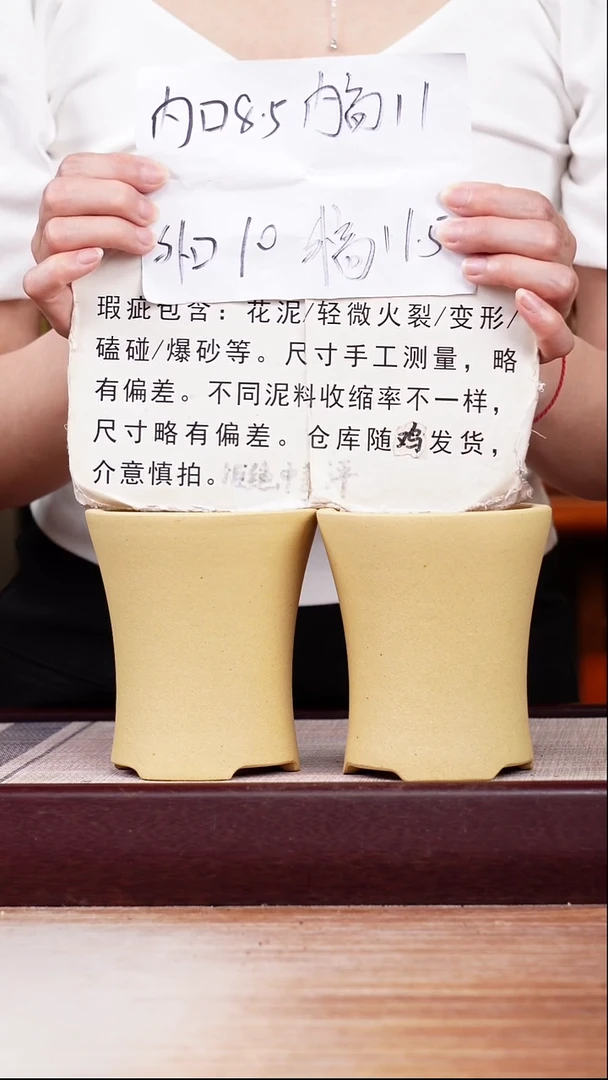 内口8.5 内高11
外口10 高11.5
瑕疵包含：花泥/轻微火裂/变形/
磕碰/爆砂等。尺寸手工测量，略
有偏差。不同泥料收缩率不一样，
尺寸略有偏差。仓库随鸡发货，
介意慎拍。